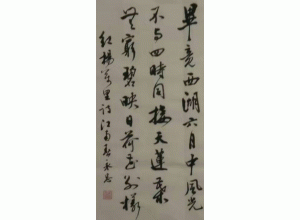 畢竟西湖六月中風光
不与四時同接天蓮葉
無窮碧映日荷花別樣
紅楊萬里詩江南春